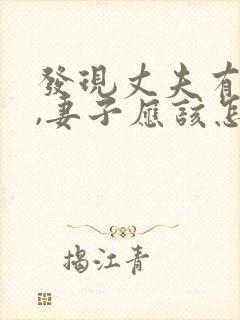 發現丈夫有
,妻子應該怎
揭江青